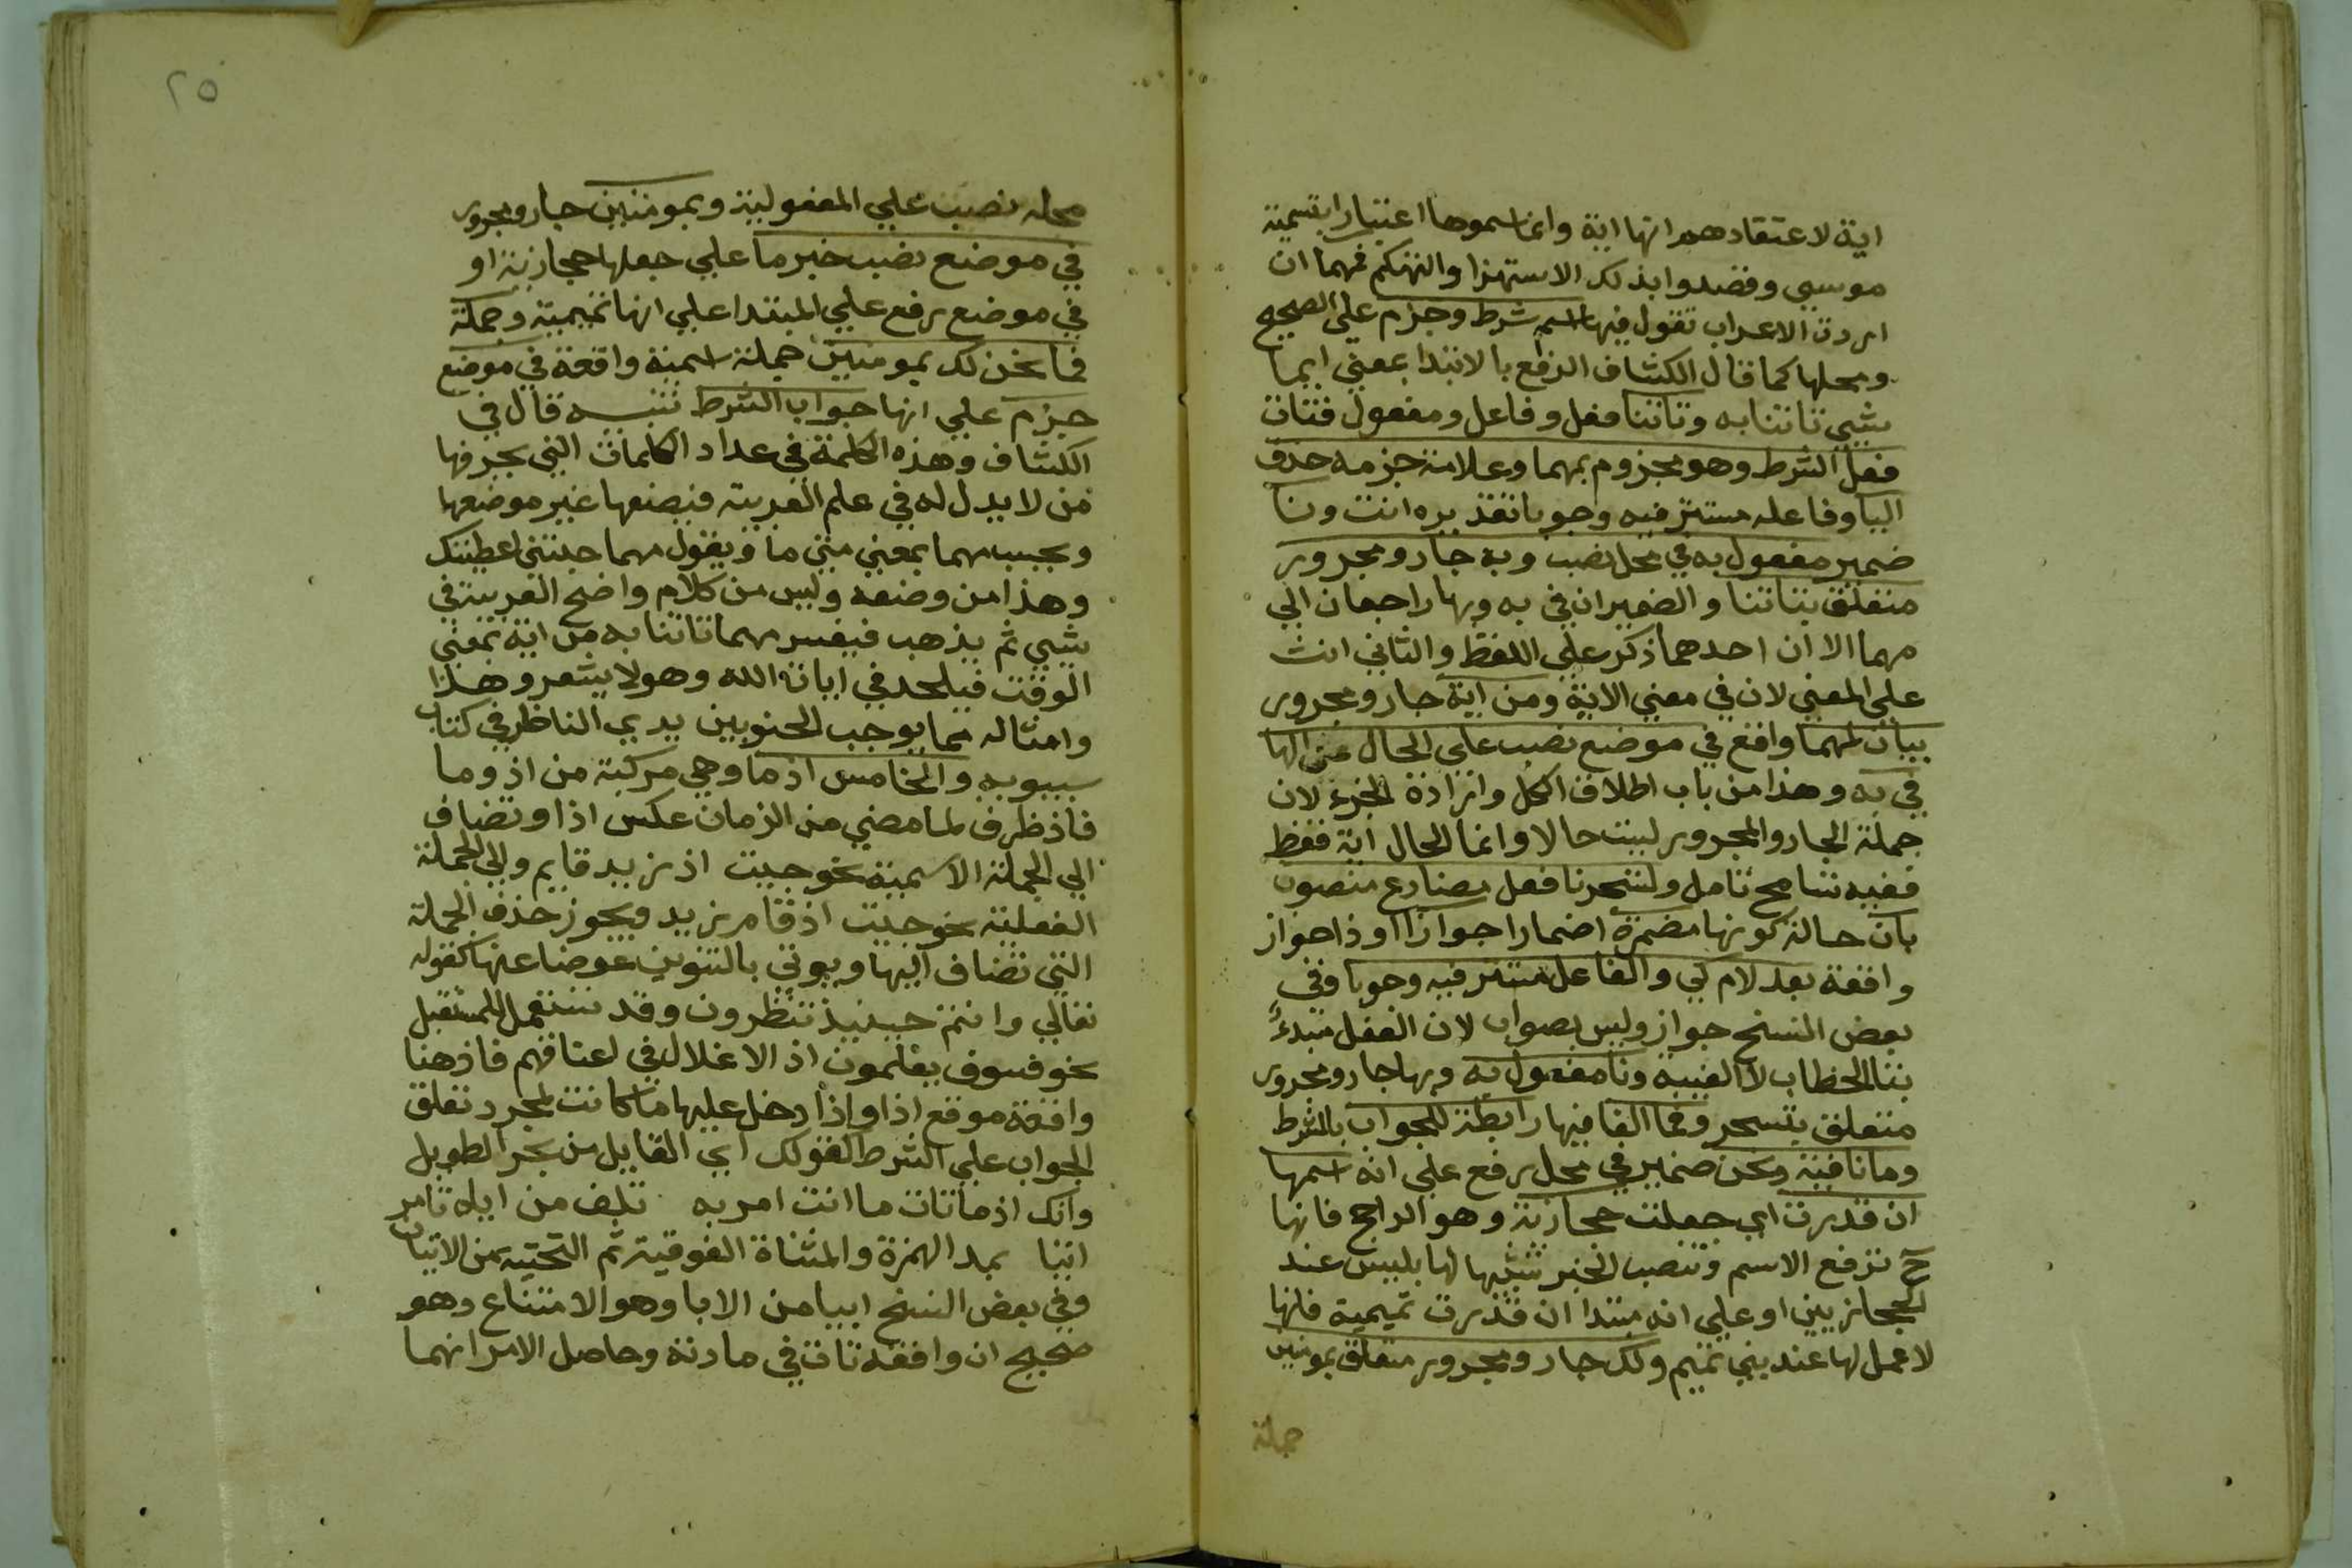 اية لاعتقادهم انها اية وانما سموها اعتبارا بتسمية
موسي وقصدوا بذلك الاستهزا والتهكم فمهما ان
اردت الاعراب تقول فيها اسم شرط وجزم علي الصحيح
ومحلها كما قال الكشاف الرفع بالابتدا بمعني ايما
شيي تاتنا به وتاتنا فعل وفاعل ومفعول فتات
فعل الشرط وهو مجزوم بمهما وعلامة جزمه حذف
اليا وفاعله مستتر فيه وجوبا تقديره انت ونا
ضمير مفعول به في محل نصب وبه جار ومجرور
متعلق بتاتنا والضميران في به وبها راجعان الي
مهما الا ان احدهما ذكر علي اللفظ والثاني انث
علي المعني لان في معني الاية ومن اية جار ومجرور
بيان لمهما واقع في موضع نصب علي الحال من الها
في به وهذا من باب اطلاق الكل وارادة الجزء لان
جملة الجار والمجرور ليست حالا وانما الحال اية فقط
ففيه تسامح تامل ولتسحرنا فعل مضارع منصوب
بان حالة كونها مضمرة اضمارا جوازا او ذا جواز
واقعة بعد لام كي والفاعل مستتر فيه وجوبا وفي
بعض النسخ جواز وليس بصواب لان الفعل مبدء
بتا الخطاب لا الغيبه ونا مفعول به وبها جار ومجرور
متعلق بتسحر وفما الفا فيها رابطة للجواب بالشرط
وما نافية ونحن ضمير في محل رفع علي انه اسمها
ان قدرت اي جعلت حجازية وهو الراجح فانها
ح ترفع الاسم وتنصب الخبر تشبيها لها بليس عند
الحجازيين او علي انه مبتدا ان قدرت تميمية فانها
لا عمل لها عند بني تميم ولك جار ومجرور متعلق بمومنين
جملة
٢٥
محله نصب علي المفعولية وبمومنين جار ومجرور
في موضع نصب خبر ما علي جعلها حجازية او
في موضع رفع علي المبتدا علي انها تميمية وجملة
فما نحن لك بمومنين جملة اسمية واقعة في موضع
جزم علي انها جواب الشرط تنبيه قال في
الكشاف وهذه الكلمة في عداد الكلمات التي يحرفها
من لا يد له في علم العربية فيضعها غير موضعها
ويحسب مهما بمعني متي ما ويقول مهما جيتني اعطيتك
وهذا من وضعه وليس من كلام واضح العربية في
شيي ثم يذهب فيفسر مهما تاتنا به من اية بمعني
الوقت فيلحد في ايات الله وهو لا يشعر وهذا
وامثاله مما يوجب الجثو بين يدي الناظر في كتاب
سيبويه والخامس اذما وهي مركبة من اذ وما
فاذ ظرف لما مضي من الزمان عكس اذا وتضاف
الي الجملة الاسمية نحو جيت اذ زيد قايم والي الجملة
الفعلية نحو جيت اذ قام زيد ويجوز حذف الجملة
التي تضاف اليها ويوتي بالتنوين عوضا عنها كقوله
تعالي وانتم حينيذ تنظرون وقد تستعمل للمستقبل
نحو فسوف يعلمون اذ الاغلال في اعناقهم فاذ هنا
واقعة موقع اذا واذا دخل عليها ما كانت لمجرد تعلق
الجواب علي الشرط كقولك اي القايل من بحر الطويل
وانك اذما تات ما انت امر به تلف من اياه تامر
اتيا بمد الهمزة والمثناة الفوقية ثم التحتيه من الاتيان
وفي بعض النسخ ابيا من الابا وهو الامتناع وهو
صحيح ان وافقه تات في مادته وحاصل الامر انهما